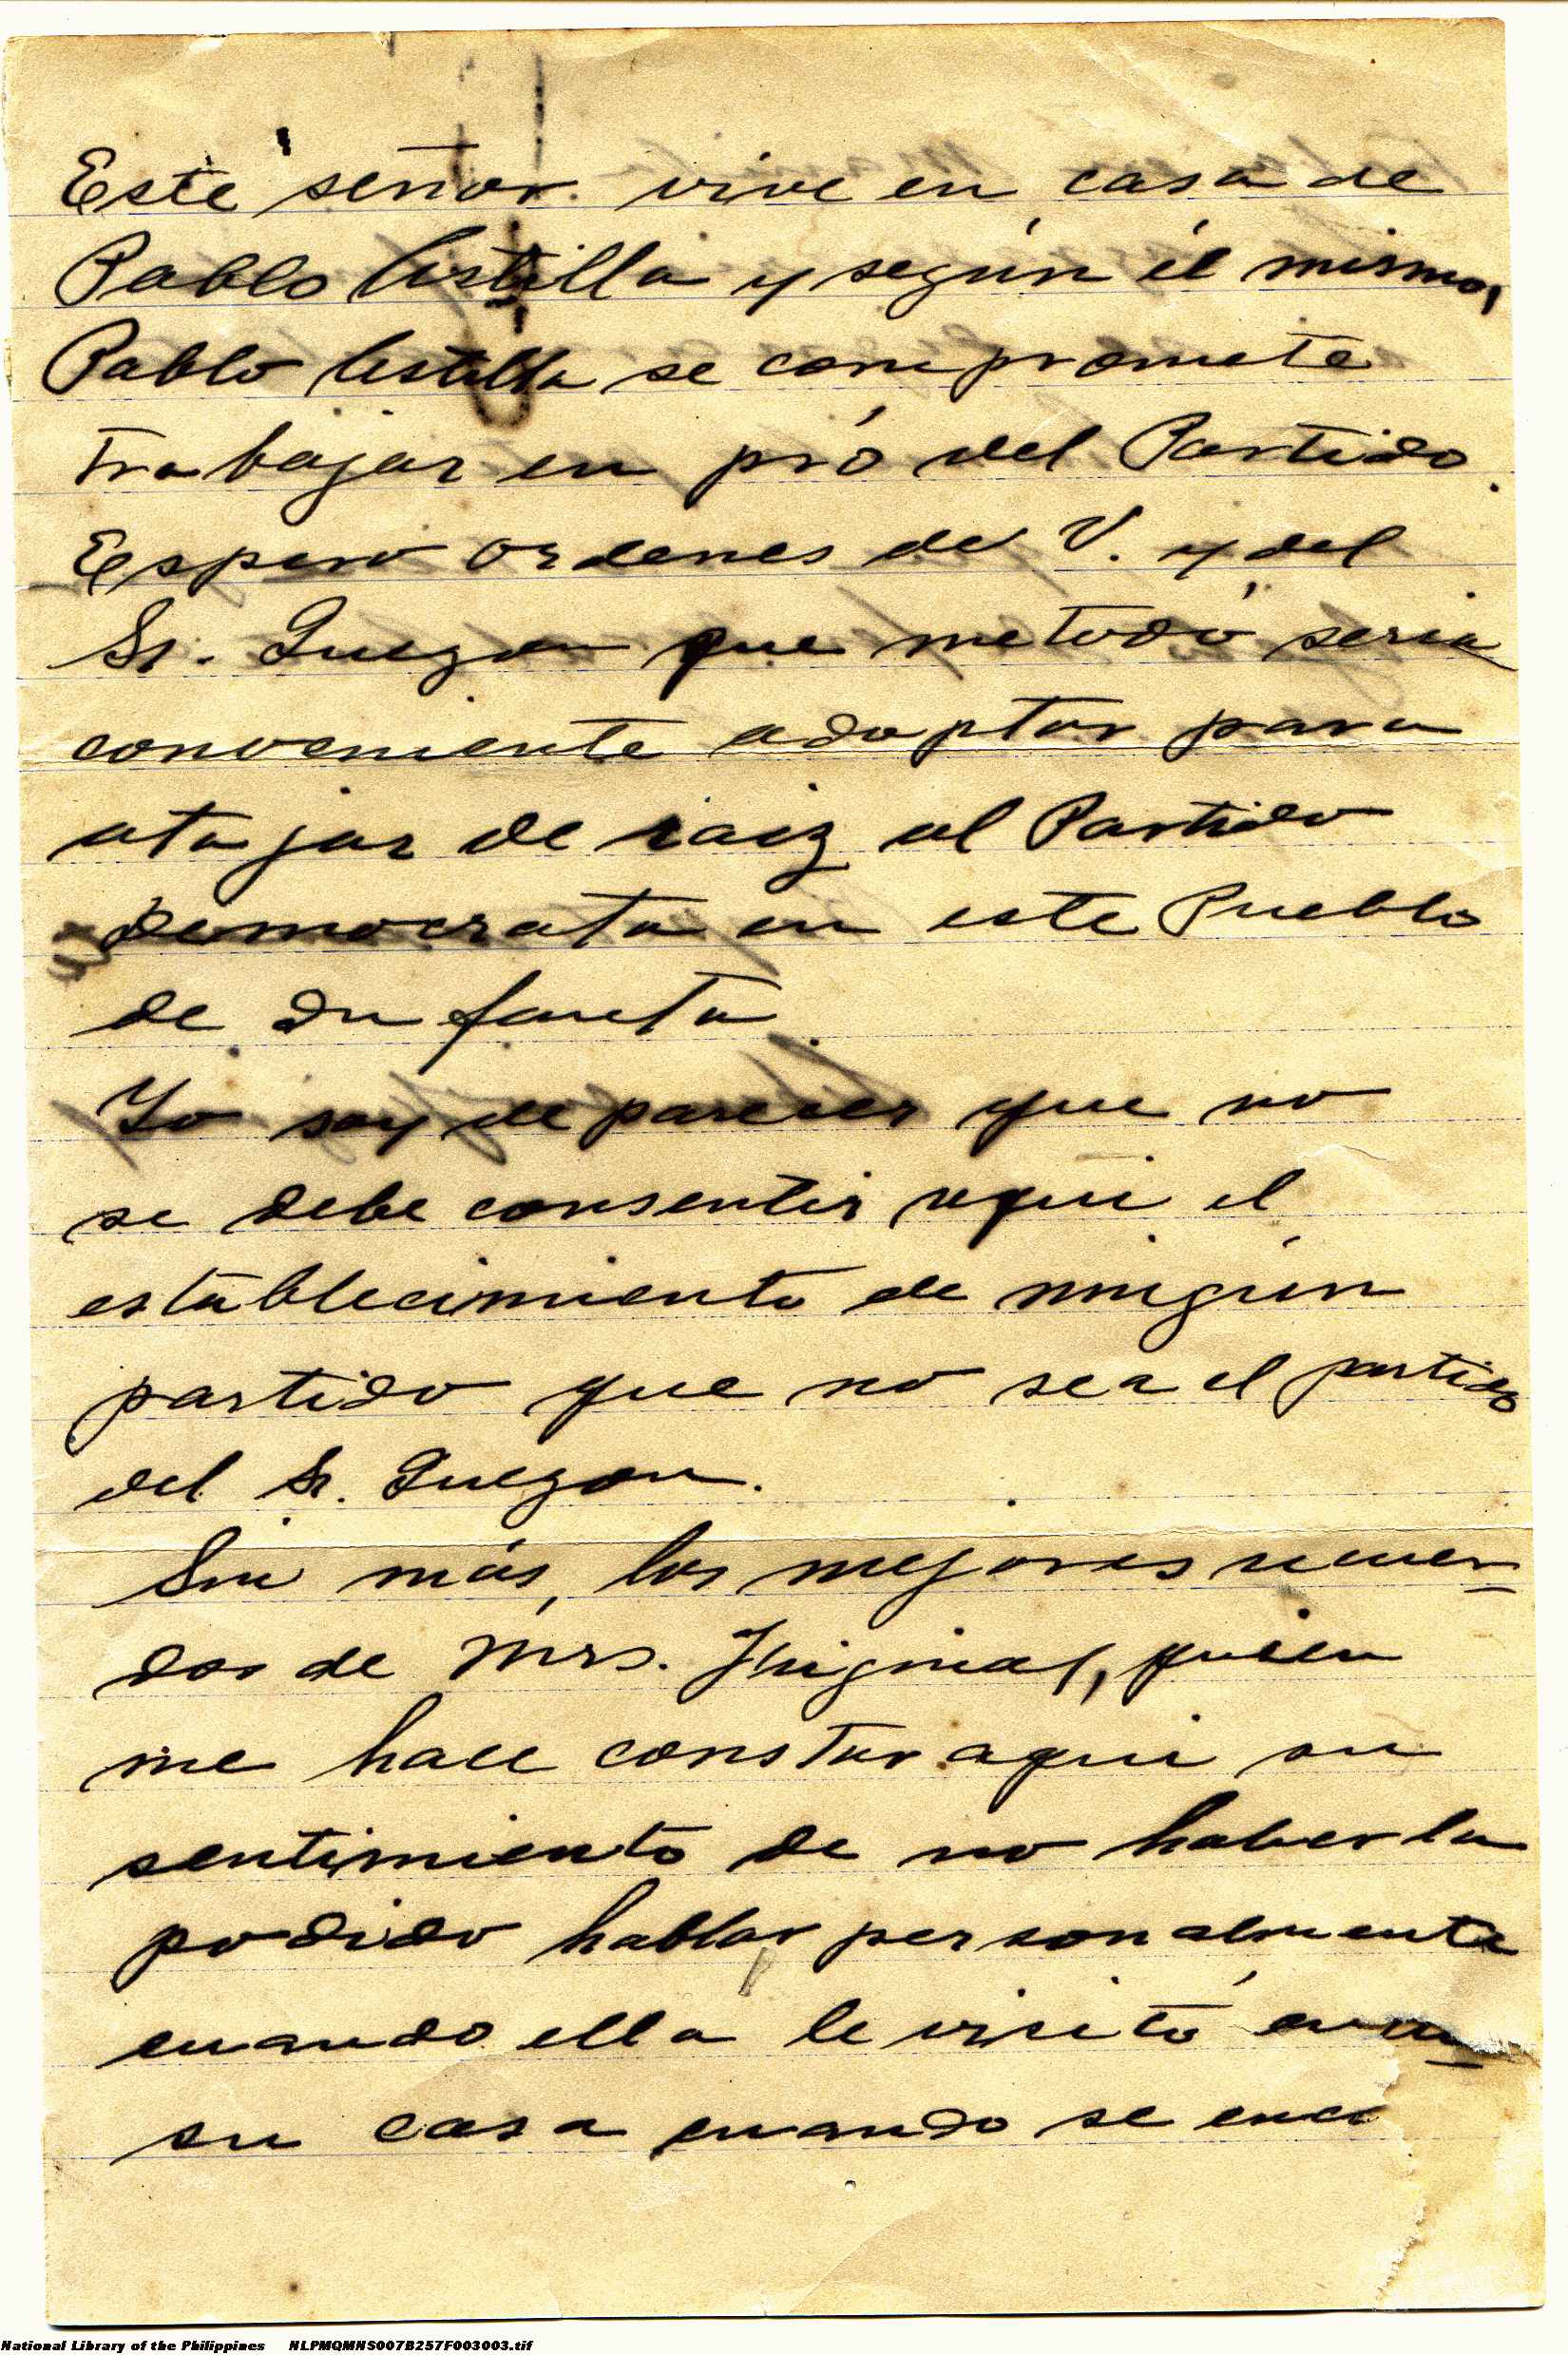 Este señor vive en casa de
Pablo Astilla y según él mismo,
Pablo Astilla se compromete
trabajar en pró del Partido.
Espero ordenes de V. y del
Sr. Quezon que metodo sería
conveniente adoptar para
atajar de raiz al Partido
democrata en este Pueblo
de Infanta.
Yo soy de parecer que no
se debe consentir aqui el
establecimiento de ningún
partido que no sea el partido
del Sr. Quezon.
Sin más, los mejores recuer-
dos de Mrs. quien
me hace constar aqui su
sentimiento de no haberla
podido hablar personalmente
cuando ella le visitó en
su casa cuando se
National Library of the Philippines NLPMQMNS007B257F003003.tif